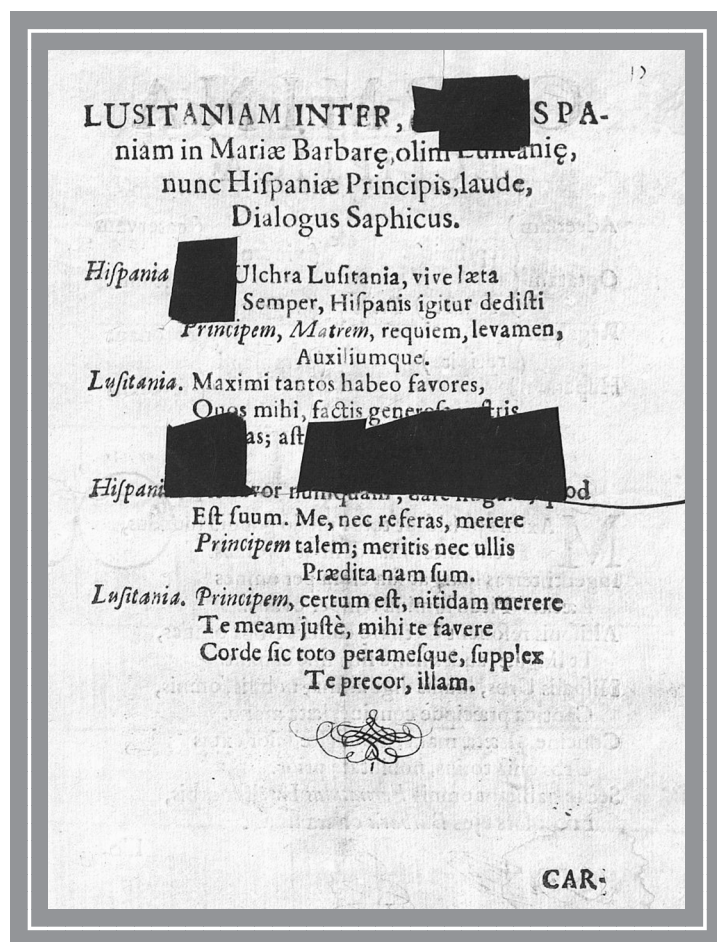 LUSITANIAM INTER, SPA-
niam in Mariæ Barbarę, olim Lusitanię,
nunc Hiſpaniæ Principis, laude,
Dialogus Saphicus.
Hiſpania Ulchra Luſitania, vive læta
Semper, Hiſpanis igitur dediſti
Principem, Matrem, requiem, levamen,
Auxiliumque.
Luſitania. Maximi tantos habeo favores,
Quos mihi, factis
as; aſt
Hiſpani numquam,
Eſt ſuum. Me, nec referas, merere
Principem talem; meritis nec ullis
Prædita nam ſum.
Luſitania. Principem, certum eſt, nitidam merere
Te meam juſtè, mihi te favere
Corde ſic toto perameſque, ſupplex
Te precor, illam.
CAR-